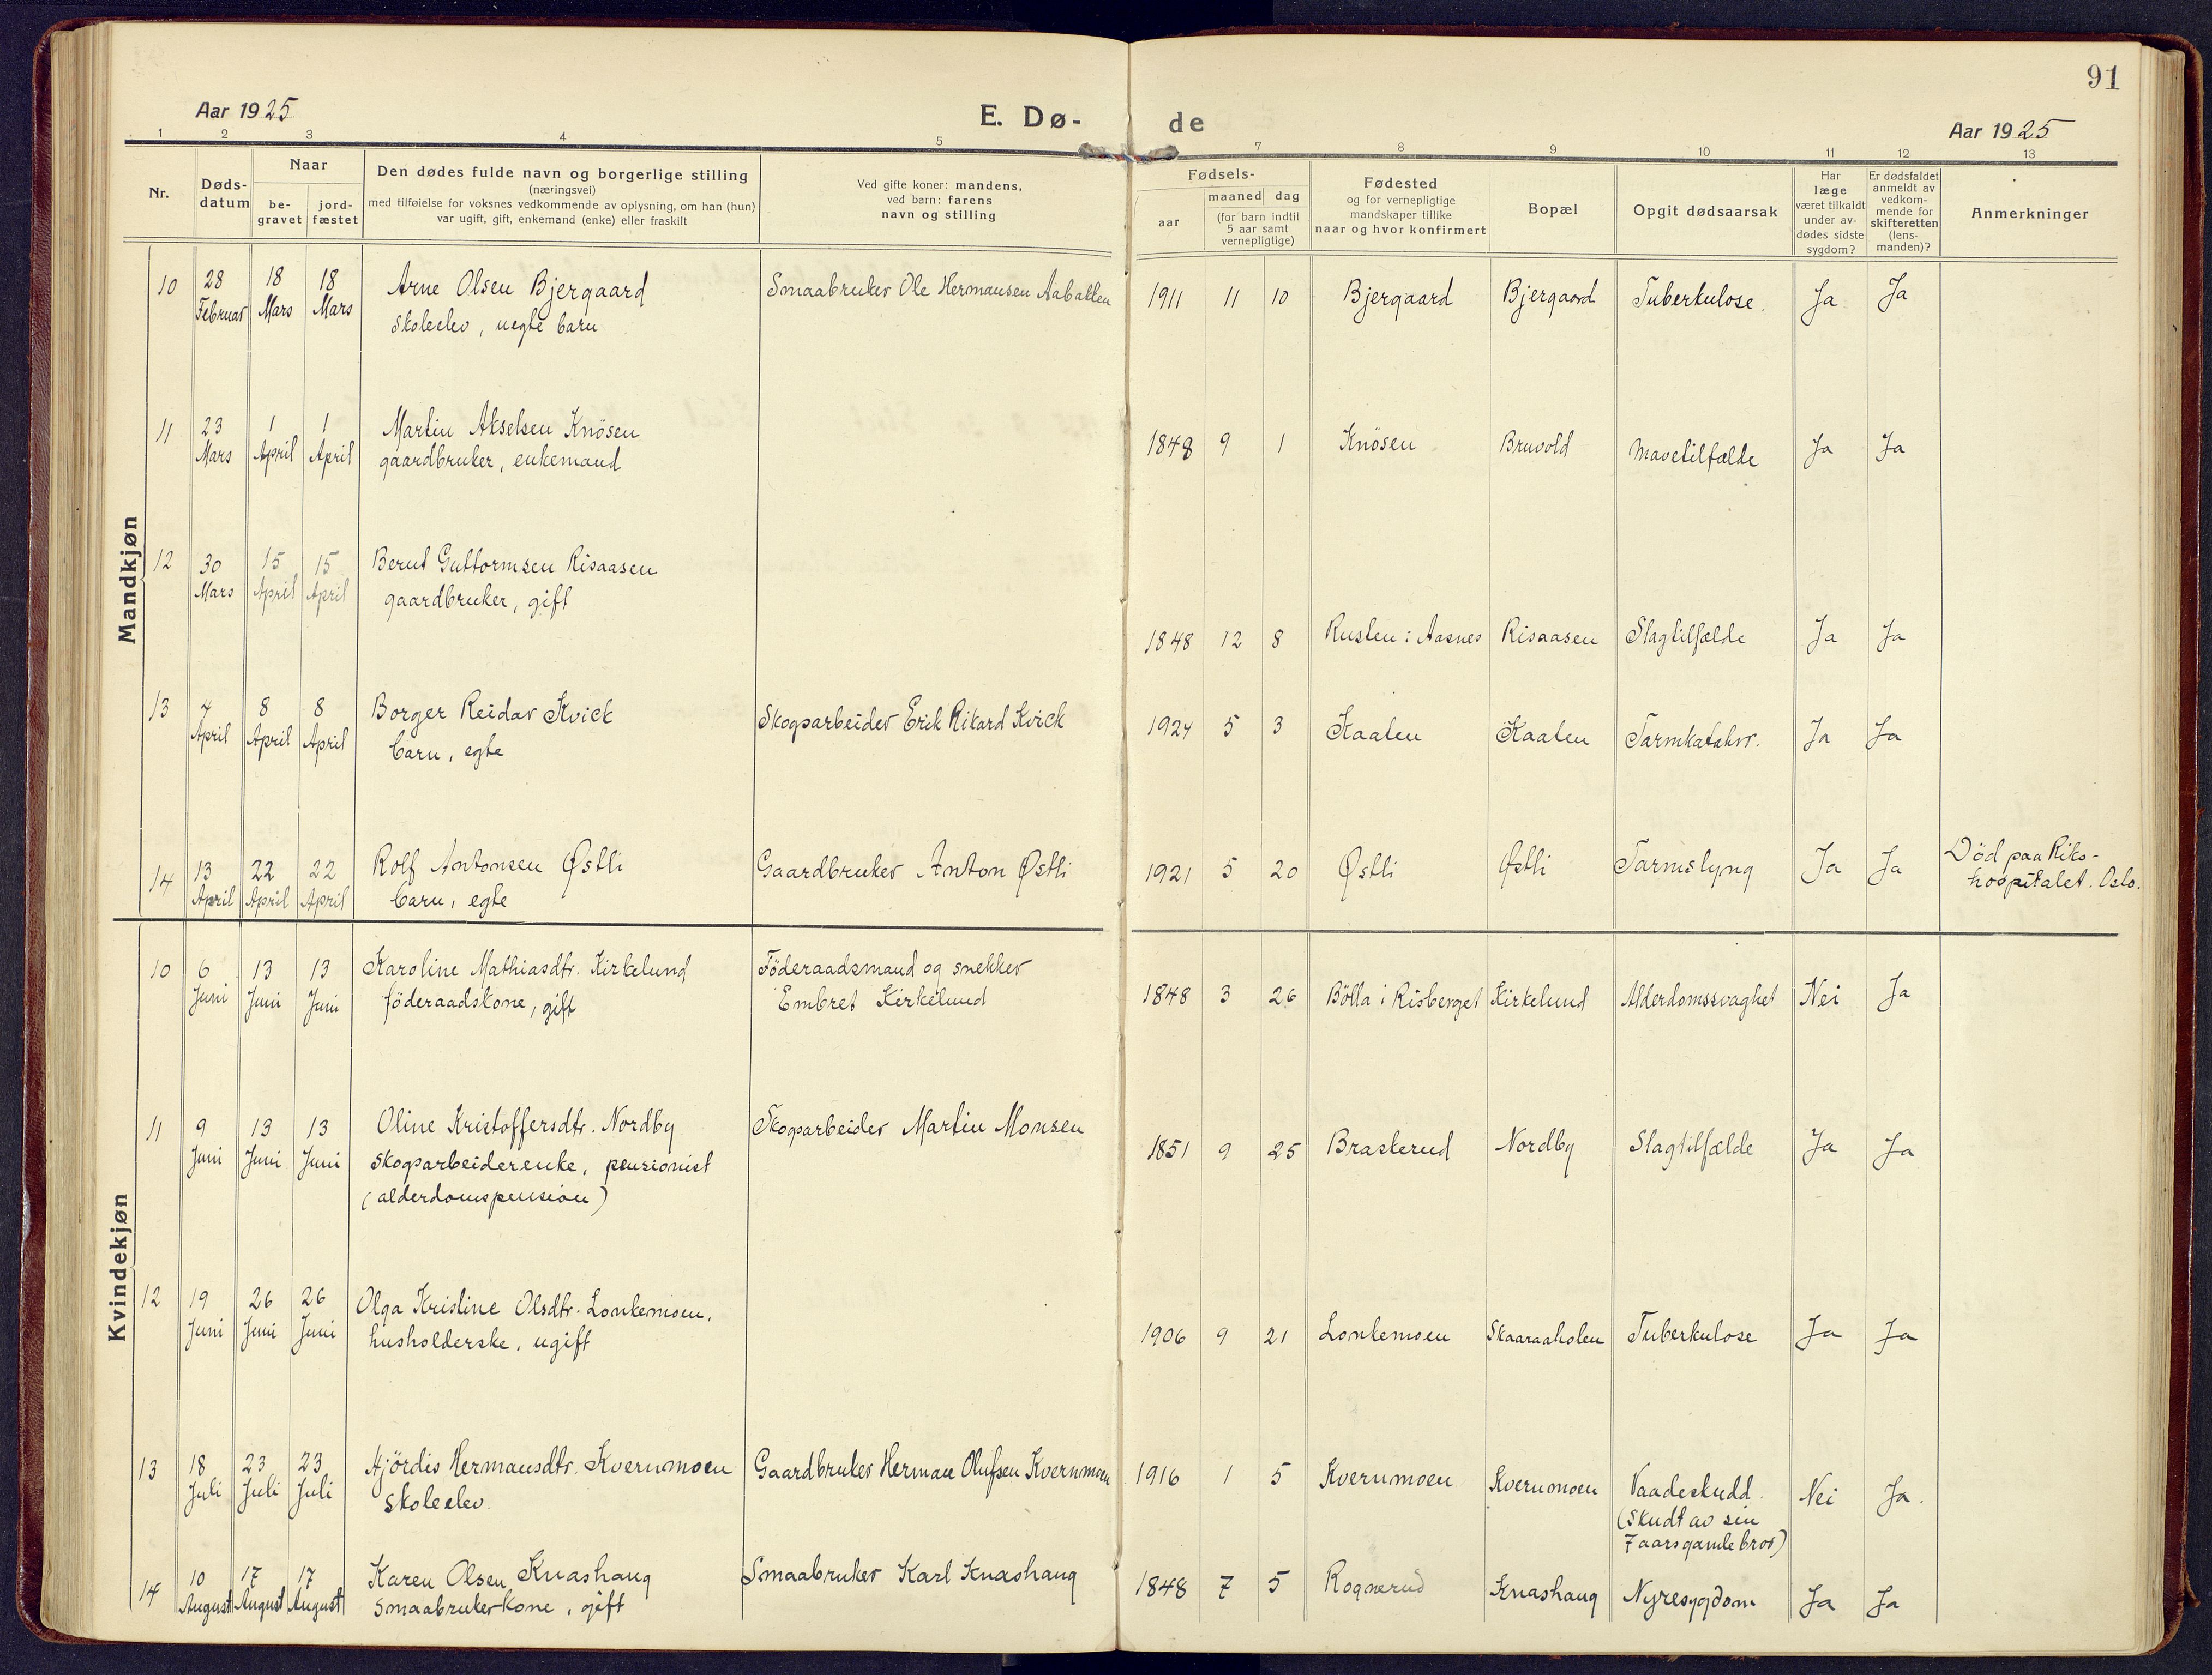 91
Aar 1925
E. Dø-
de
Aar 1925
1 2 3 4 5 7 8 9 10 11 12 13
Nr.
Døds-
datum
Naar
be-
gravet
jord-
fæstet
Den dødes fulde navn og borgerlige stilling
(næringsvei)
med tilføielse for voksnes vedkommende av oplysning, om han (hun)
var ugift, gift, enkemand (enke) eller fraskilt
Ved gifte koner: mandens,
ved barn: farens
navn og stilling
Fødsels-
aar
maaned dag
(for barn indtil
5 aar samt
vernepligtige)
Fødested
og for vernepligtige
mandskaper tillike
naar og hvor konfirmert
Bopæl
Opgit dødsaarsak
Har
læge
været tilkaldt
under av-
dødes sidste
sygdom?
Er dødsfaldet
anmeldt av
vedkom-
mende for
skifteretten
(lens-
manden)?
Anmerkninger
Mandkjøn
10 28 18 18 Arne Olsen Bjergaard Smaabruker Ole Hermansen Aabakken 1911 11 10 Bjergaard Bjergaard Tuberkulose. Ja Ja
Februar Mars Mars skoleelev, uegte barn
11 23 1 1 Martin Akselsen Knösen 1848 9 1 Knösen Bruvold Mavetilfælde Ja Ja
Mars April April gaardbruker, enkemand
12 30 15 15 Bernt Guttormsen Risaasen
Mars April April gaardbruker, gift
1848 12 8 Rusten i Aasnes Risaasen Slagtilfælde Ja Ja
13 7 8 8 Borger Reidar Kvick Skogsarbeider Erik Rikard Kvick 1924 5 3 Kaaten Kaaten Tarmkatahrr. Ja Ja
April April April barn, egte
14 13 22 22 Rolf Antonsen Østli Gaardbruker Anton Østli 1921 5 20 Østli Østli Tarmslyng Ja Ja Död paa Riks-
April April April barn, egte hospitalet. Oslo.
Kvindekjøn
10 6 13 13 Karoline Mathiasdtr. Kirkelund Föderaadsmand og snekker
Juni Juni Juni föderaadskone, gift Embret Kirkelund 1848 3 26 Bölla i Risberget Kirkelund Alderdomssvaghet Nei Ja
11 9 13 13 Oline Kristoffersdtr. Nordby Skogsarbeider Martin Monsen 1851 9 25 Brasterud Nordby Slagtilfælde Ja Ja
Juni Juni Juni skogsarbeiderenke, pensionist
(alderdomspension)
12 19 26 26 Olga Kristine Olsdtr. Lonkemoen.
Juni Juni Juni husholderske, ugift 1906 9 21 Lonkemoen Skaaraaholen Tuberkulose Ja Ja
13 18 23 23 Hjördis Hermansdtr. Kvernmoen Gaardbruker Herman Olufsen Kvernmoen 1916 1 5 Kvernmoen Kvernmoen Vaadeskudd. Nei Ja.
Juli Juli Juli skoleelev. (Skudt av sin
7 aarsgamle bror)
14 10 17 17 Karen Olsen Knashaug Smaabruker Karl Knashaug 1848 7 5 Rognerud Knashaug Nyresygdom Ja Ja
August August August smaabrukerkone, gift